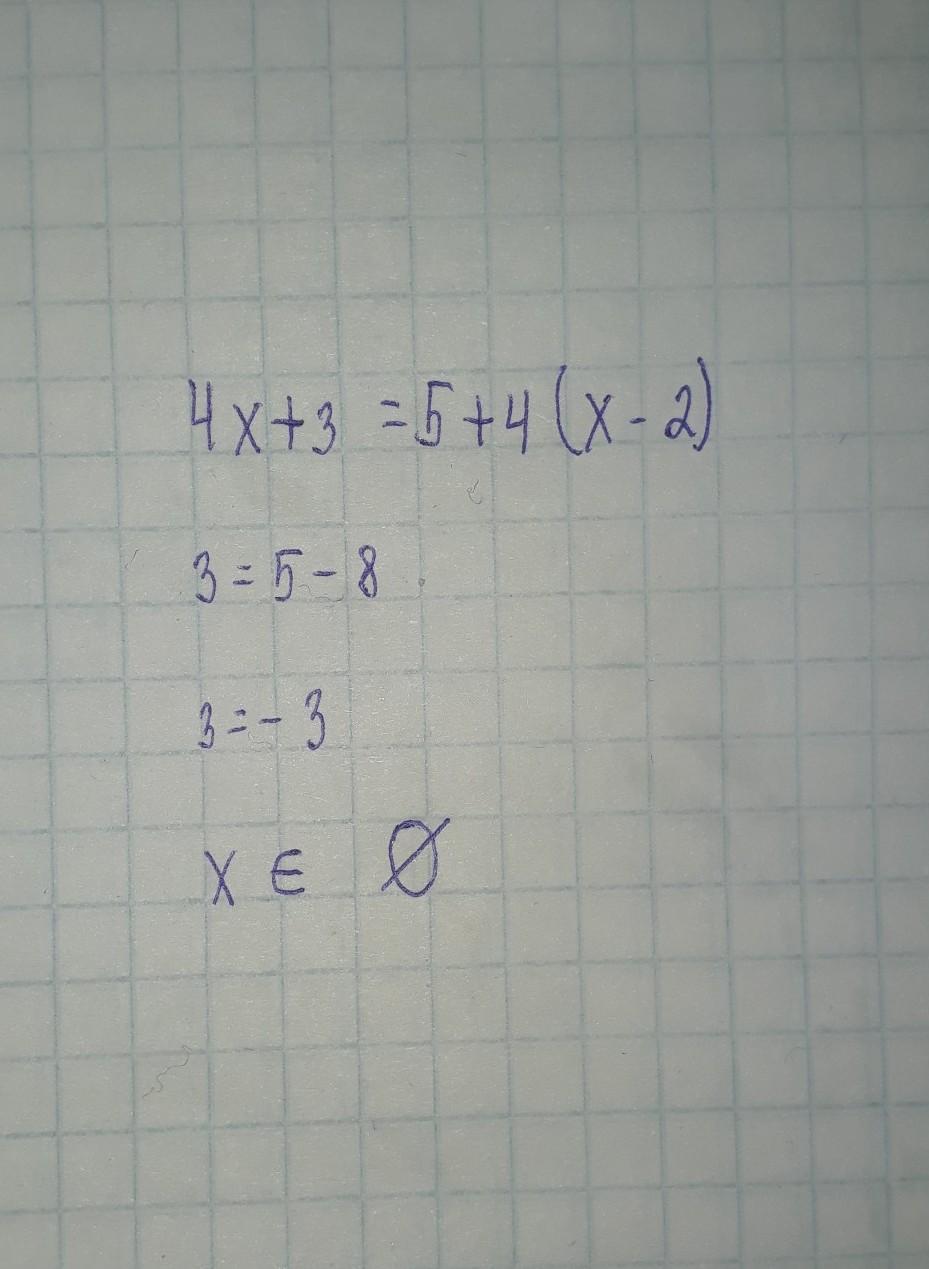 4x+3 =5+4(x-2)
3=5-8
3=-3
x ∈ ∅